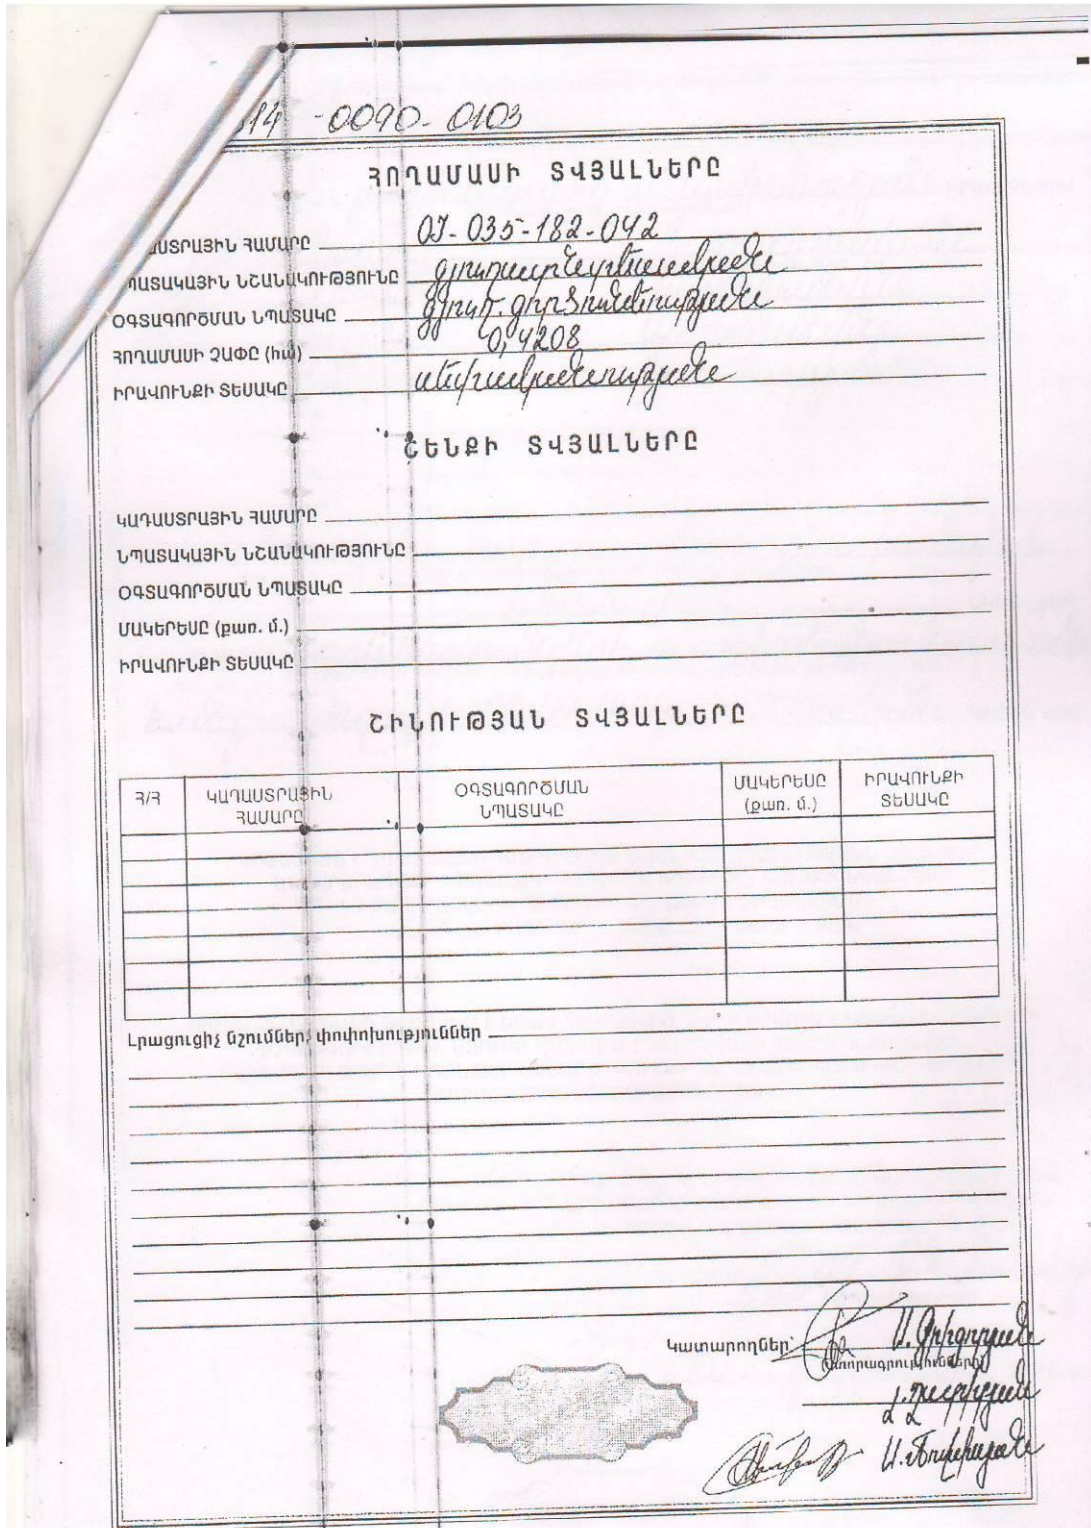 314 -0090-0103
ՀՈՂԱՄԱՍԻ ՏՎՅԱԼՆԵՐԸ
ԱՍՏՐԱՅԻՆ ՀԱՄԱՐԸ 07-035-182-042
ՊԱՏԱԿԱՅԻՆ ՆՇԱՆԱԿՈՒԹՅՈՒՆԸ գյուղատնտեսական
ՕԳՏԱԳՈՐԾՄԱՆ ՆՊԱՏԱԿԸ գյուղ.
ՀՈՂԱՄԱՍԻ ՉԱՓԸ (հա) 0,4208
ԻՐԱՎՈՒՆՔԻ ՏԵՍԱԿԸ սեփականության
ՇԵՆՔԻ ՏՎՅԱԼՆԵՐԸ
ԿԱԴԱՍՏՐԱՅԻՆ ՀԱՄԱՐԸ
ՆՊԱՏԱԿԱՅԻՆ ՆՇԱՆԱԿՈՒԹՅՈՒՆԸ
ՕԳՏԱԳՈՐԾՄԱՆ ՆՊԱՏԱԿԸ
ՄԱԿԵՐԵՍԸ (քառ. մ.)
ԻՐԱՎՈՒՆՔԻ ՏԵՍԱԿԸ
ՇԻՆՈՒԹՅԱՆ ՏՎՅԱԼՆԵՐԸ
Հ/Հ ԿԱԴԱՍՏՐԱՅԻՆ ՀԱՄԱՐԸ ՕԳՏԱԳՈՐԾՄԱՆ ՆՊԱՏԱԿԸ ՄԱԿԵՐԵՍԸ (քառ. մ.) ԻՐԱՎՈՒՆՔԻ ՏԵՍԱԿԸ
Լրացուցիչ նշումներ, փոփոխություններ
Կատարողներ՝ Ա. Գրիգորյան
(ստորագրությունները)